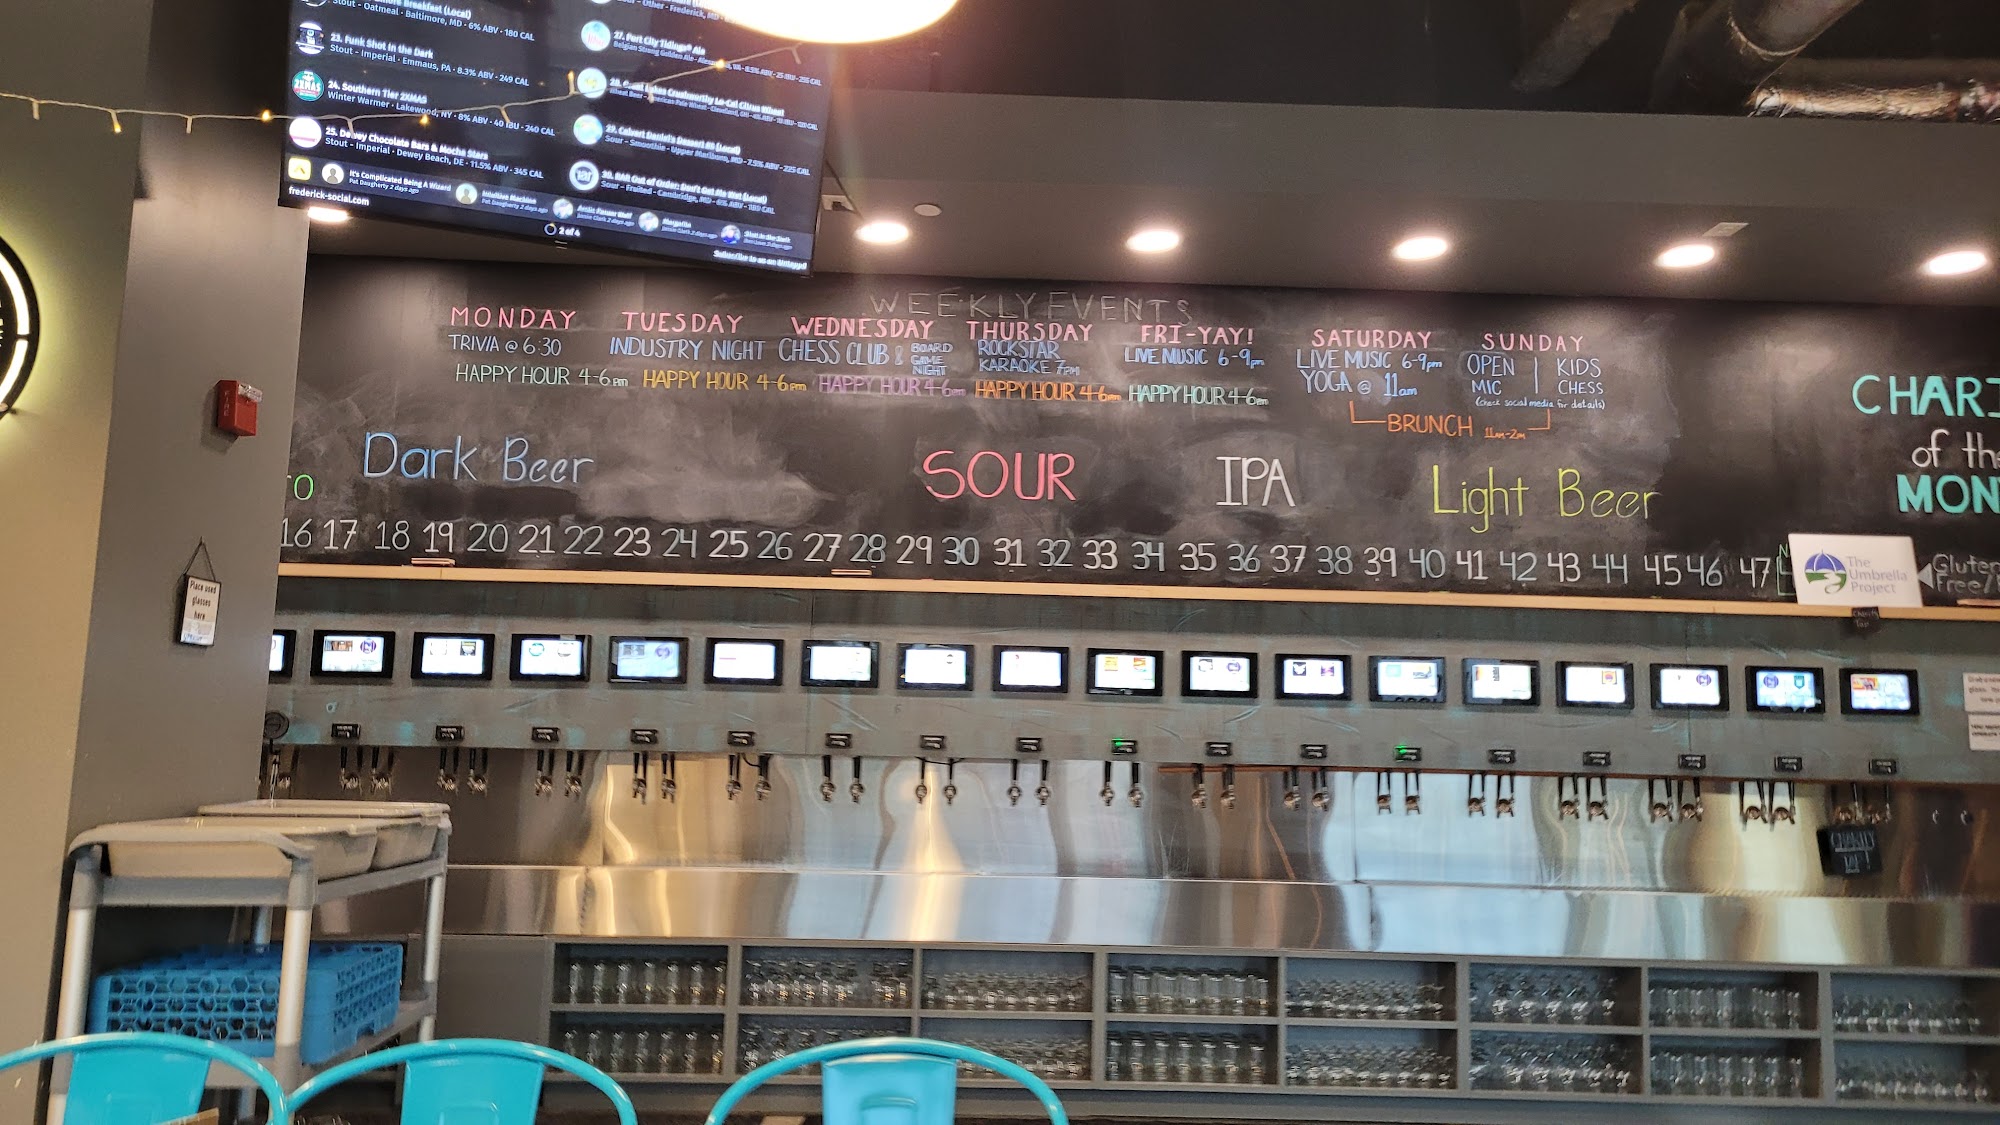 Breakfast (Local)
Stout - Oatmeal - Baltimore, MD • 6% ABV • 180 CAL
23. Funk Shot in the Dark
Stout - Imperial • Emmaus, PA • 8.3% ABV • 249 CAL
24. Southern Tier 2XMAS
Winter Warmer • Lakewood, NY • 8% ABV • 40 IBU • 240 CAL
25. Dewey Chocolate Bars & Mocha Stars
Stout - Imperial • Dewey Beach, DE • 11.5% ABV • 345 CAL
27. Port City Tidings® Ale
Belgian Strong Golden Ale
28. Great Lakes Crushworthy Lo-Cal Citrus Wheat
29. Calvert Daniel's Dessert #5 (Local)
Sour - Smoothie • Upper Marlboro, MD • 7.5% ABV • 225 CAL
30. RAR Out of Order: Don't Get Me Wet (Local)
Sour - Fruited • Cambridge, MD • 6% ABV • 180 CAL
It's Complicated Being A Wizard
Pat Daugherty 2 days ago
Intuitive Machine
Pat Daugherty 2 days ago
Margarita
frederick-social.com
2 of 4
WEEKLY EVENTS
MONDAY
TRIVIA @ 6:30
HAPPY HOUR 4-6pm
TUESDAY
INDUSTRY NIGHT
HAPPY HOUR 4-6pm
WEDNESDAY
CHESS CLUB & BOARD GAME NIGHT
HAPPY HOUR 4-6pm
THURSDAY
ROCKSTAR
KARAOKE 7PM
HAPPY HOUR 4-6pm
FRI-YAY!
LIVE MUSIC 6-9pm
HAPPY HOUR 4-6pm
SATURDAY
LIVE MUSIC 6-9pm
YOGA @ 11am
SUNDAY
OPEN MIC | KIDS CHESS
(check social media for details)
BRUNCH 11am-2pm
TO
Dark Beer
SOUR
IPA
Light Beer
CHARI
of the
MON
16 17 18 19 20 21 22 23 24 25 26 27 28 29 30 31 32 33 34 35 36 37 38 39 40 41 42 43 44 45 46 47
The
Umbrella
Project
Gluten
Free/
Charity
Tap
FIRE
Place used
glasses
here
CHARITY
TAP!